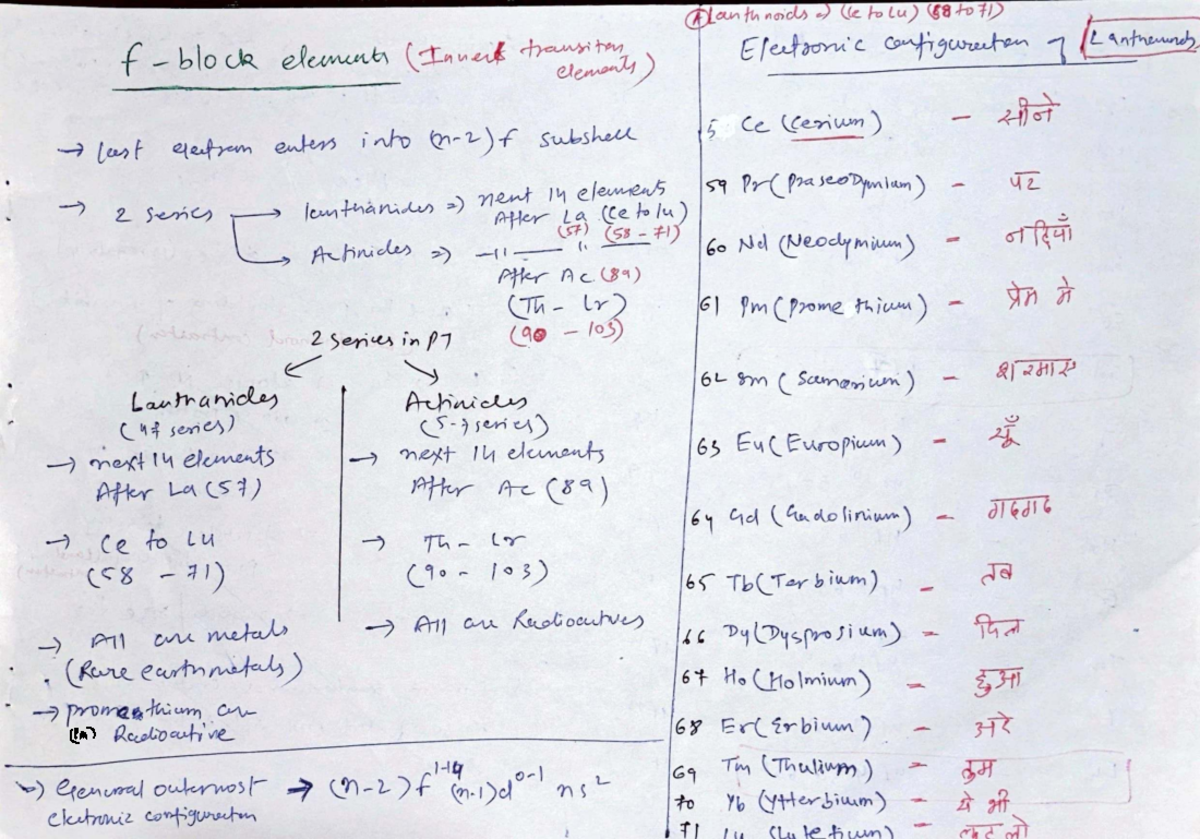 f-block elements (Inner transition elements)
→ last electron enters into (n-2) f subshell
→ 2 series → lanthanides ⇒ next 14 elements
After La (Ce to Lu)
(57) (58-71)
→ Actinides ⇒ -11 — "
After Ac (89)
(Th - Lr)
(90 - 103)
2 series in PT
Lanthanides
(4f series)
→ next 14 elements
After La (57)
→ Ce to Lu
(58 - 71)
→ All are metals
(Rare earth metals)
→ promethium are
(Pm) Radioactive
Actinides
(5-f series)
→ next 14 elements
After Ac (89)
→ Th - Lr
(90 - 103)
→ All are Radioactives
→ General outermost → (n-2) f¹⁻¹⁴ (n-1)d⁰⁻¹ ns²
electronic configuration
(A) Lanthnoids ⇒ (Ce to Lu) (58 to 71)
Electronic configuration of
5 Ce (Cerium) - सीने
59 Pr (PraseoDymium) - पर
60 Nd (Neodymium) - नदियाँ
61 Pm (Promethium) - प्रेम मे
62 Sm (Samarium) -
63 Eu (Europium) - यूँ
64 Gd (Gadolinium) - गदगद
65 Tb (Terbium) - तब
66 Dy (Dysprosium) - दिल
67 Ho (Holmium) - हुआ
68 Er (Erbium) - अरे
69 Tm (Thulium) - तुम
70 Yb (Ytterbium) - ये भी
71 Lu (Lutetium)